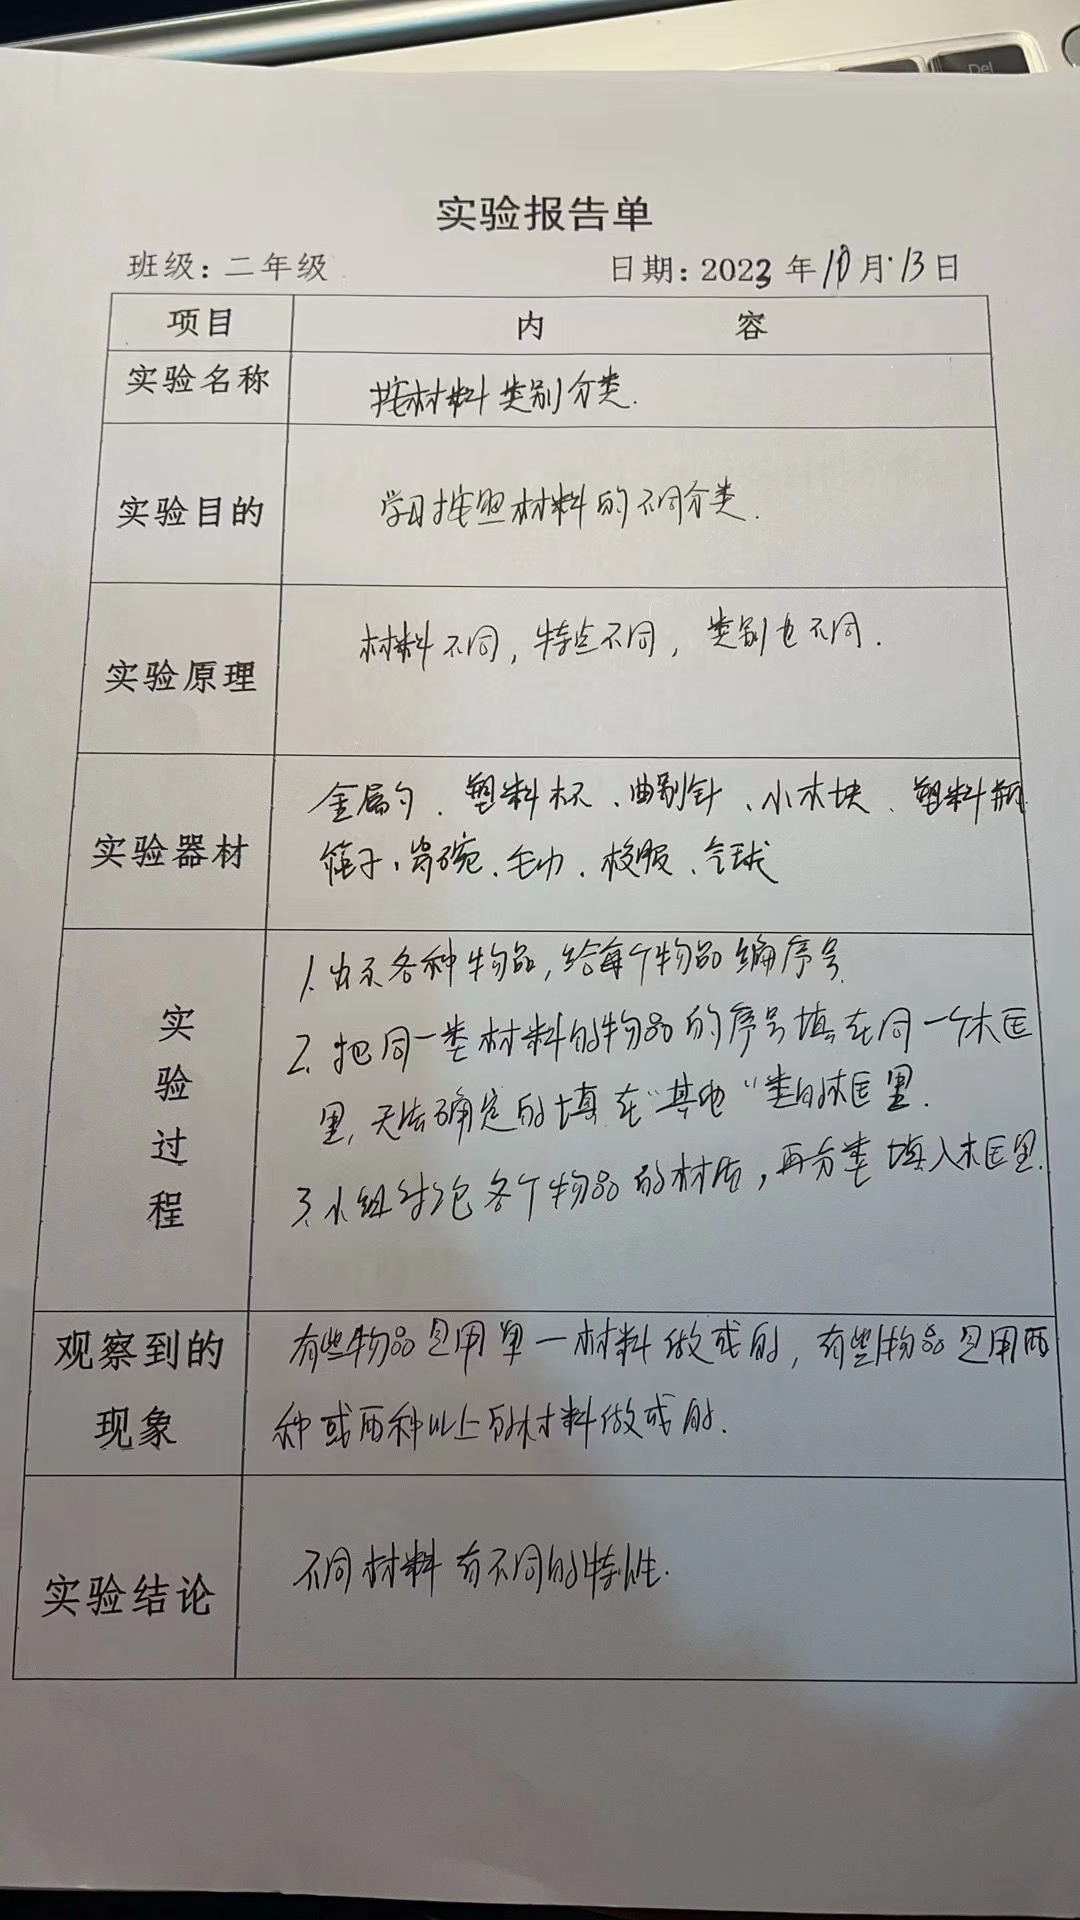 Del
实验报告单
班级：二年级 日期：2023年10月·13日
项目 内 容
实验名称 按材料类别分类.
实验目的 学习按照材料的不同分类.
实验原理 材料不同，特点不同，类别也不同.
实验器材 金属勺、塑料杯、曲别针、小木块、塑料瓶
筷子，瓷碗、毛巾、校服、气球
实验过程 1.出示各种物品，给每个物品编序号.
2.把同一类材料的物品的序号填在同一个木匡
里，无法确定的填在“其他”类的木匡里.
3.小组讨论各个物品的材质，再分类填入木匡里.
观察到的 有些物品是用单一材料做成的，有些物品是用两
现象 种或两种以上的材料做成的.
实验结论 不同材料有不同的特性.